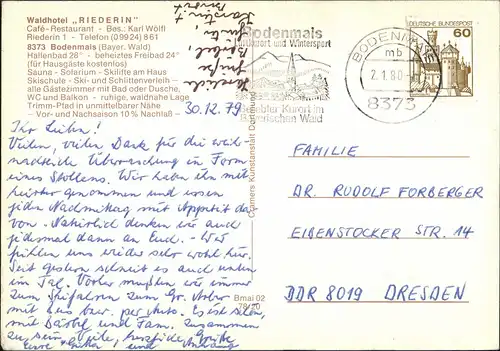 Waldhotel „RIEDERIN"
Café-Restaurant - Bes.: Karl Wölfl
Riederin 1 - Telefon (09924) 861
8373 Bodenmais (Bayer. Wald)
Hallenbad 28° - beheiztes Freibad 24°
(für Hausgäste kostenlos)
Sauna - Solarium - Skilifte am Haus
Skischule - Ski- und Schlittenverleih -
alle Gästezimmer mit Bad oder Dusche,
WC und Balkon - ruhige, waldnahe Lage
Trimm-Pfad in unmittelbarer Nähe
- Vor- und Nachsaison 10% Nachlaß -
30.12.79
Ihr Lieben!
Vielen, vielen Dank für die weih-
nachtliche Überraschung in Form
eines Stollens. Wir haben ihn mit
hierher genommen und essen
jeden Nachmittag mit Appetit da
von - Natürlich denken wir auch
jedesmal dann an Euch. - Wir
fühlen uns wieder sehr wohl hier.
Seit gestern schneit es auch unten
im Tal. Vorher mußten wir immer
zum Skifahren zum Gr. Arber
mit Bus bzw. per Auto. Es ist schön,
mit Bärbel und Fam. zusammen
zu sein. Viele, herzliche Grüße
Eure und Anhang
Bodenmais
Luftkurort und Wintersport
Beliebter Kurort im
Bayerischen Wald
BODENMAIS
mb
2.1.80
8373
DEUTSCHE BUNDESPOST
60
Cramers Kunstanstalt Dortmund
Bmai 02
78/20
FAMILIE
DR. RUDOLF FORBERGER
EIBENSTOCKER STR. 14
DDR 8019 DRESDEN